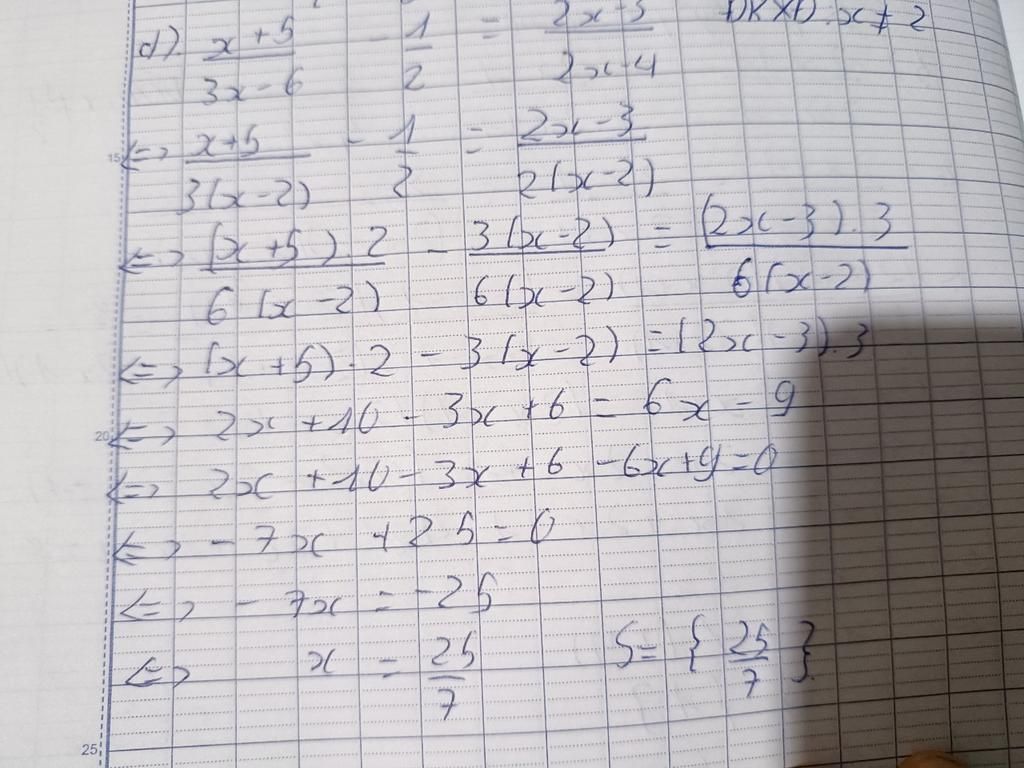 d) \frac{x+5}{3x-6} - \frac{1}{2} = \frac{2x-3}{2x-4} ĐKXĐ: x ≠ 2
<=> \frac{x+5}{3(x-2)} - \frac{1}{2} = \frac{2x-3}{2(x-2)}
15
<=> \frac{(x+5).2}{6(x-2)} - \frac{3(x-2)}{6(x-2)} = \frac{(2x-3).3}{6(x-2)}
<=> (x+5).2 - 3(x-2) = (2x-3).3
<=> 2x+10 - 3x+6 = 6x - 9
20
<=> 2x+10-3x+6-6x+9=0
<=> -7x +25=0
<=> -7x = -25
<=> x = \frac{25}{7} S= { \frac{25}{7} }
25